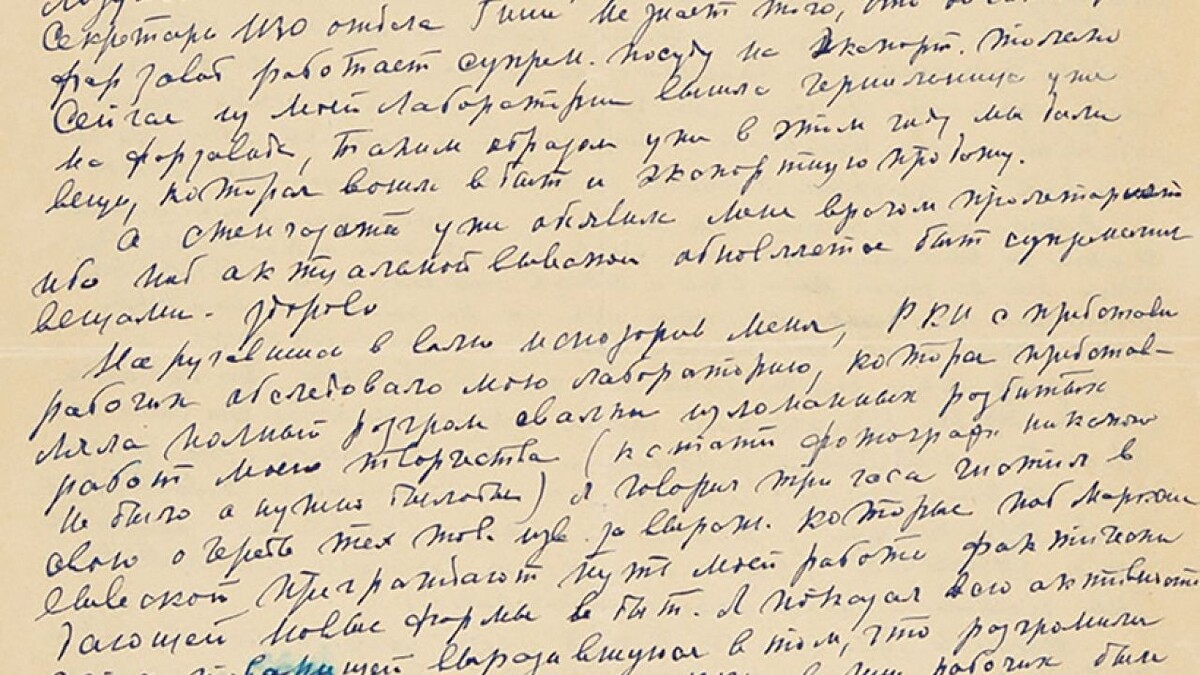 Секретарь ИЗО отдела Гиии не знает того, что
фарзавод работает супрем. посуду на экспорт. только
Сейчас из моей Лаборатории вышла чернильница уже
на фарзавода, таким образом уже в этом году мы дали
вещь, которая вошла в быт и экспортную продажу.
А стенгазета уже обявила меня врагом пролетариата
ибо под актуальной вывеской обновляется быт супрематич
вещами. здорово
Наругавшись в волю исподоров меня, РКИ с
рабочих обследовало мою лабораторию, котора представ-
ляла полный розгром свалки изломанных розбитых
работ моего творчества (кстати фотографа никакого
не было а нужно было бы) я говорил три часа чистил в
свою очередь тех тов. изв. за выраж. которые под марксои
вывеской, преграждают путь моей работе фактически
дающей новые формы в быт. Я показал всю активность
в том, что розгромили
рабочих были